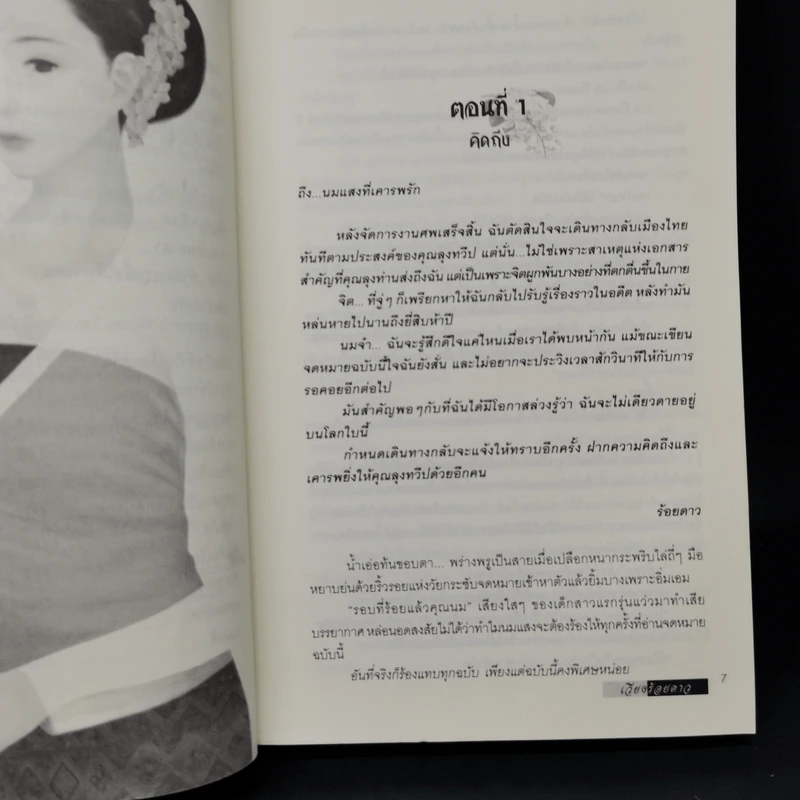 ตอนที่ 1
คิดถึง
ถึง...นมแสงที่เคารพรัก
หลังจัดการงานศพเสร็จสิ้น ฉันตัดสินใจจะเดินทางกลับเมืองไทย
ทันทีตามประสงค์ของคุณลุงทวีป แต่นั่น...ไม่ใช่เพราะสาเหตุแห่งเอกสาร
สำคัญที่คุณลุงท่านส่งถึงฉัน แต่เป็นเพราะจิตผูกพันบางอย่างที่ตกตื่นขึ้นในกาย
จิต... ที่จู่ๆ ก็เพรียกหาให้ฉันกลับไปรับรู้เรื่องราวในอดีต หลังทำมัน
หล่นหายไปนานถึงยี่สิบห้าปี
นมจำ... ฉันจะรู้สึกดีใจแค่ไหนเมื่อเราได้พบหน้ากัน แม้ขณะเขียน
จดหมายฉบับนี้ใจฉันยังสั่น และไม่อยากจะประวิงเวลาสักวินาทีให้กับการ
รอคอยอีกต่อไป
มันสำคัญพอๆกับที่ฉันได้มีโอกาสล่วงรู้ว่า ฉันจะไม่เดียวดายอยู่
บนโลกใบนี้
กำหนดเดินทางกลับจะแจ้งให้ทราบอีกครั้ง ฝากความคิดถึงและ
เคารพยิ่งให้คุณลุงทวีปด้วยอีกคน
ร้อยดาว
น้ำเอ่อท้นขอบตา... พร่างพรูเป็นสายเมื่อเปลือกหนากระพริบไล่ถี่ๆ มือ
หยาบย่นด้วยริ้วรอยแห่งวัยกระชับจดหมายเข้าหาตัวแล้วยิ้มบางเพราะอิ่มเอม
"รอบที่ร้อยแล้วคุณนม" เสียงใสๆ ของเด็กสาวแรกรุ่นแว่วมาทำเสีย
บรรยากาศ หล่อนอดสงสัยไม่ได้ว่าทำไมนมแสงจะต้องร้องไห้ทุกครั้งที่อ่านจดหมาย
ฉบับนี้
อันที่จริงก็ร้องแทบทุกฉบับ เพียงแต่ฉบับนี้คงพิเศษหน่อย
เวียงร้อยดาว
7